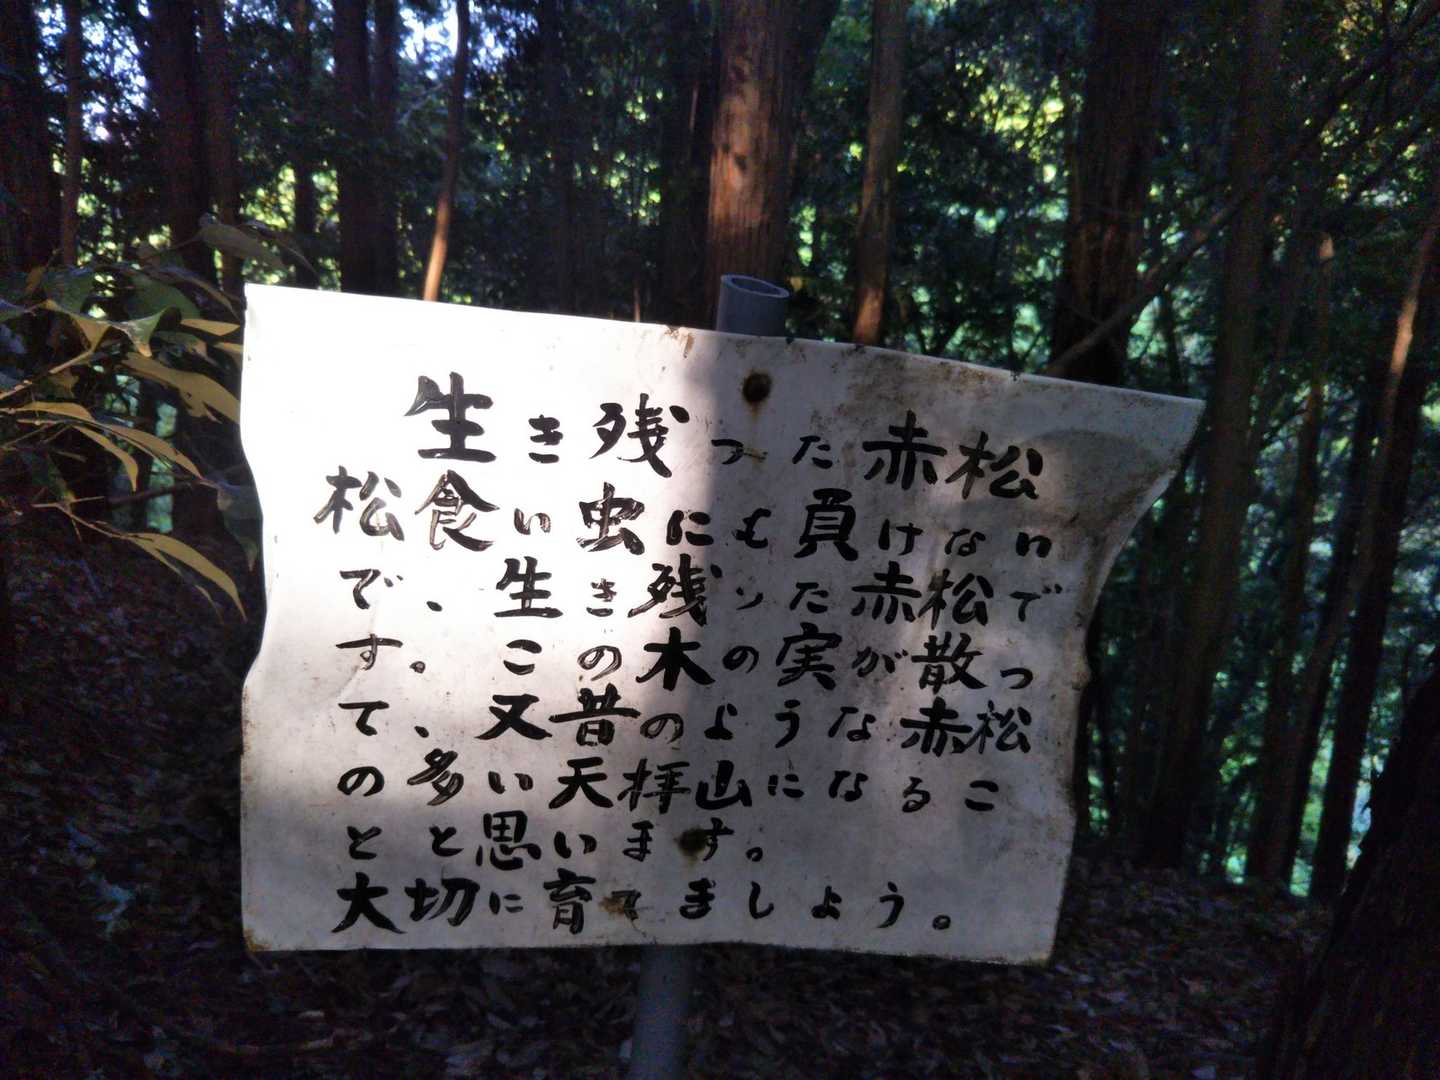 生き残った赤松
松食い虫にも負けない
で、生き残った赤松で
す。この木の実が散っ
て、又昔のような赤松
の多い天拝山になるこ
とと思います。
大切に育てましょう。